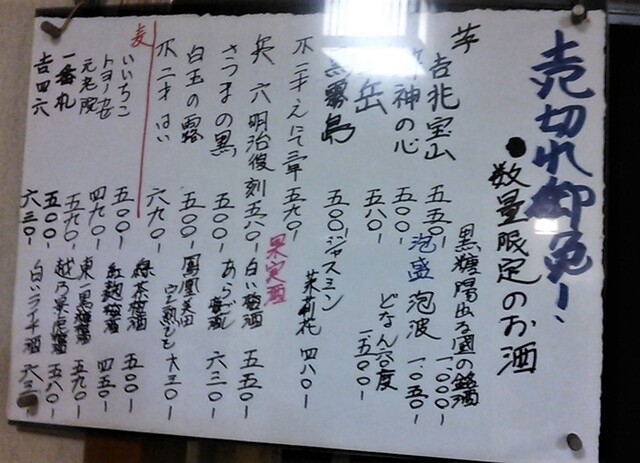 売切れ御免!、
●数量限定のお酒
芋
吉兆宝山 五五〇-
神の心 五〇〇-
岳 五八〇-
黒霧島 五〇〇-
不二才 五九〇-
兵六明治復刻 五八〇-
さつまの黒 五〇〇-
白玉の露 五〇〇-
不二才はい 六九〇-
麦
いいちこ 五〇〇-
トヨノカゼ 四九〇-
元老院 五九〇-
一番札 五〇〇-
吉四六 六三〇-
黒糖 陽出る国の銘酒 一.〇〇〇-
泡盛 泡波 一.〇五〇-
どなん六〇度 一五〇〇-
ジャスミン
茉莉花 四八〇-
果実酒
白い梅酒 五五〇-
あらごし梅酒 六三〇-
鳳凰美田
完熟もも 六三〇-
緑茶梅酒 五〇〇-
紅麹梅酒 四五〇-
東一黒糖梅酒 五九〇-
越乃景虎梅酒 五八〇-
白いライチ酒 六三